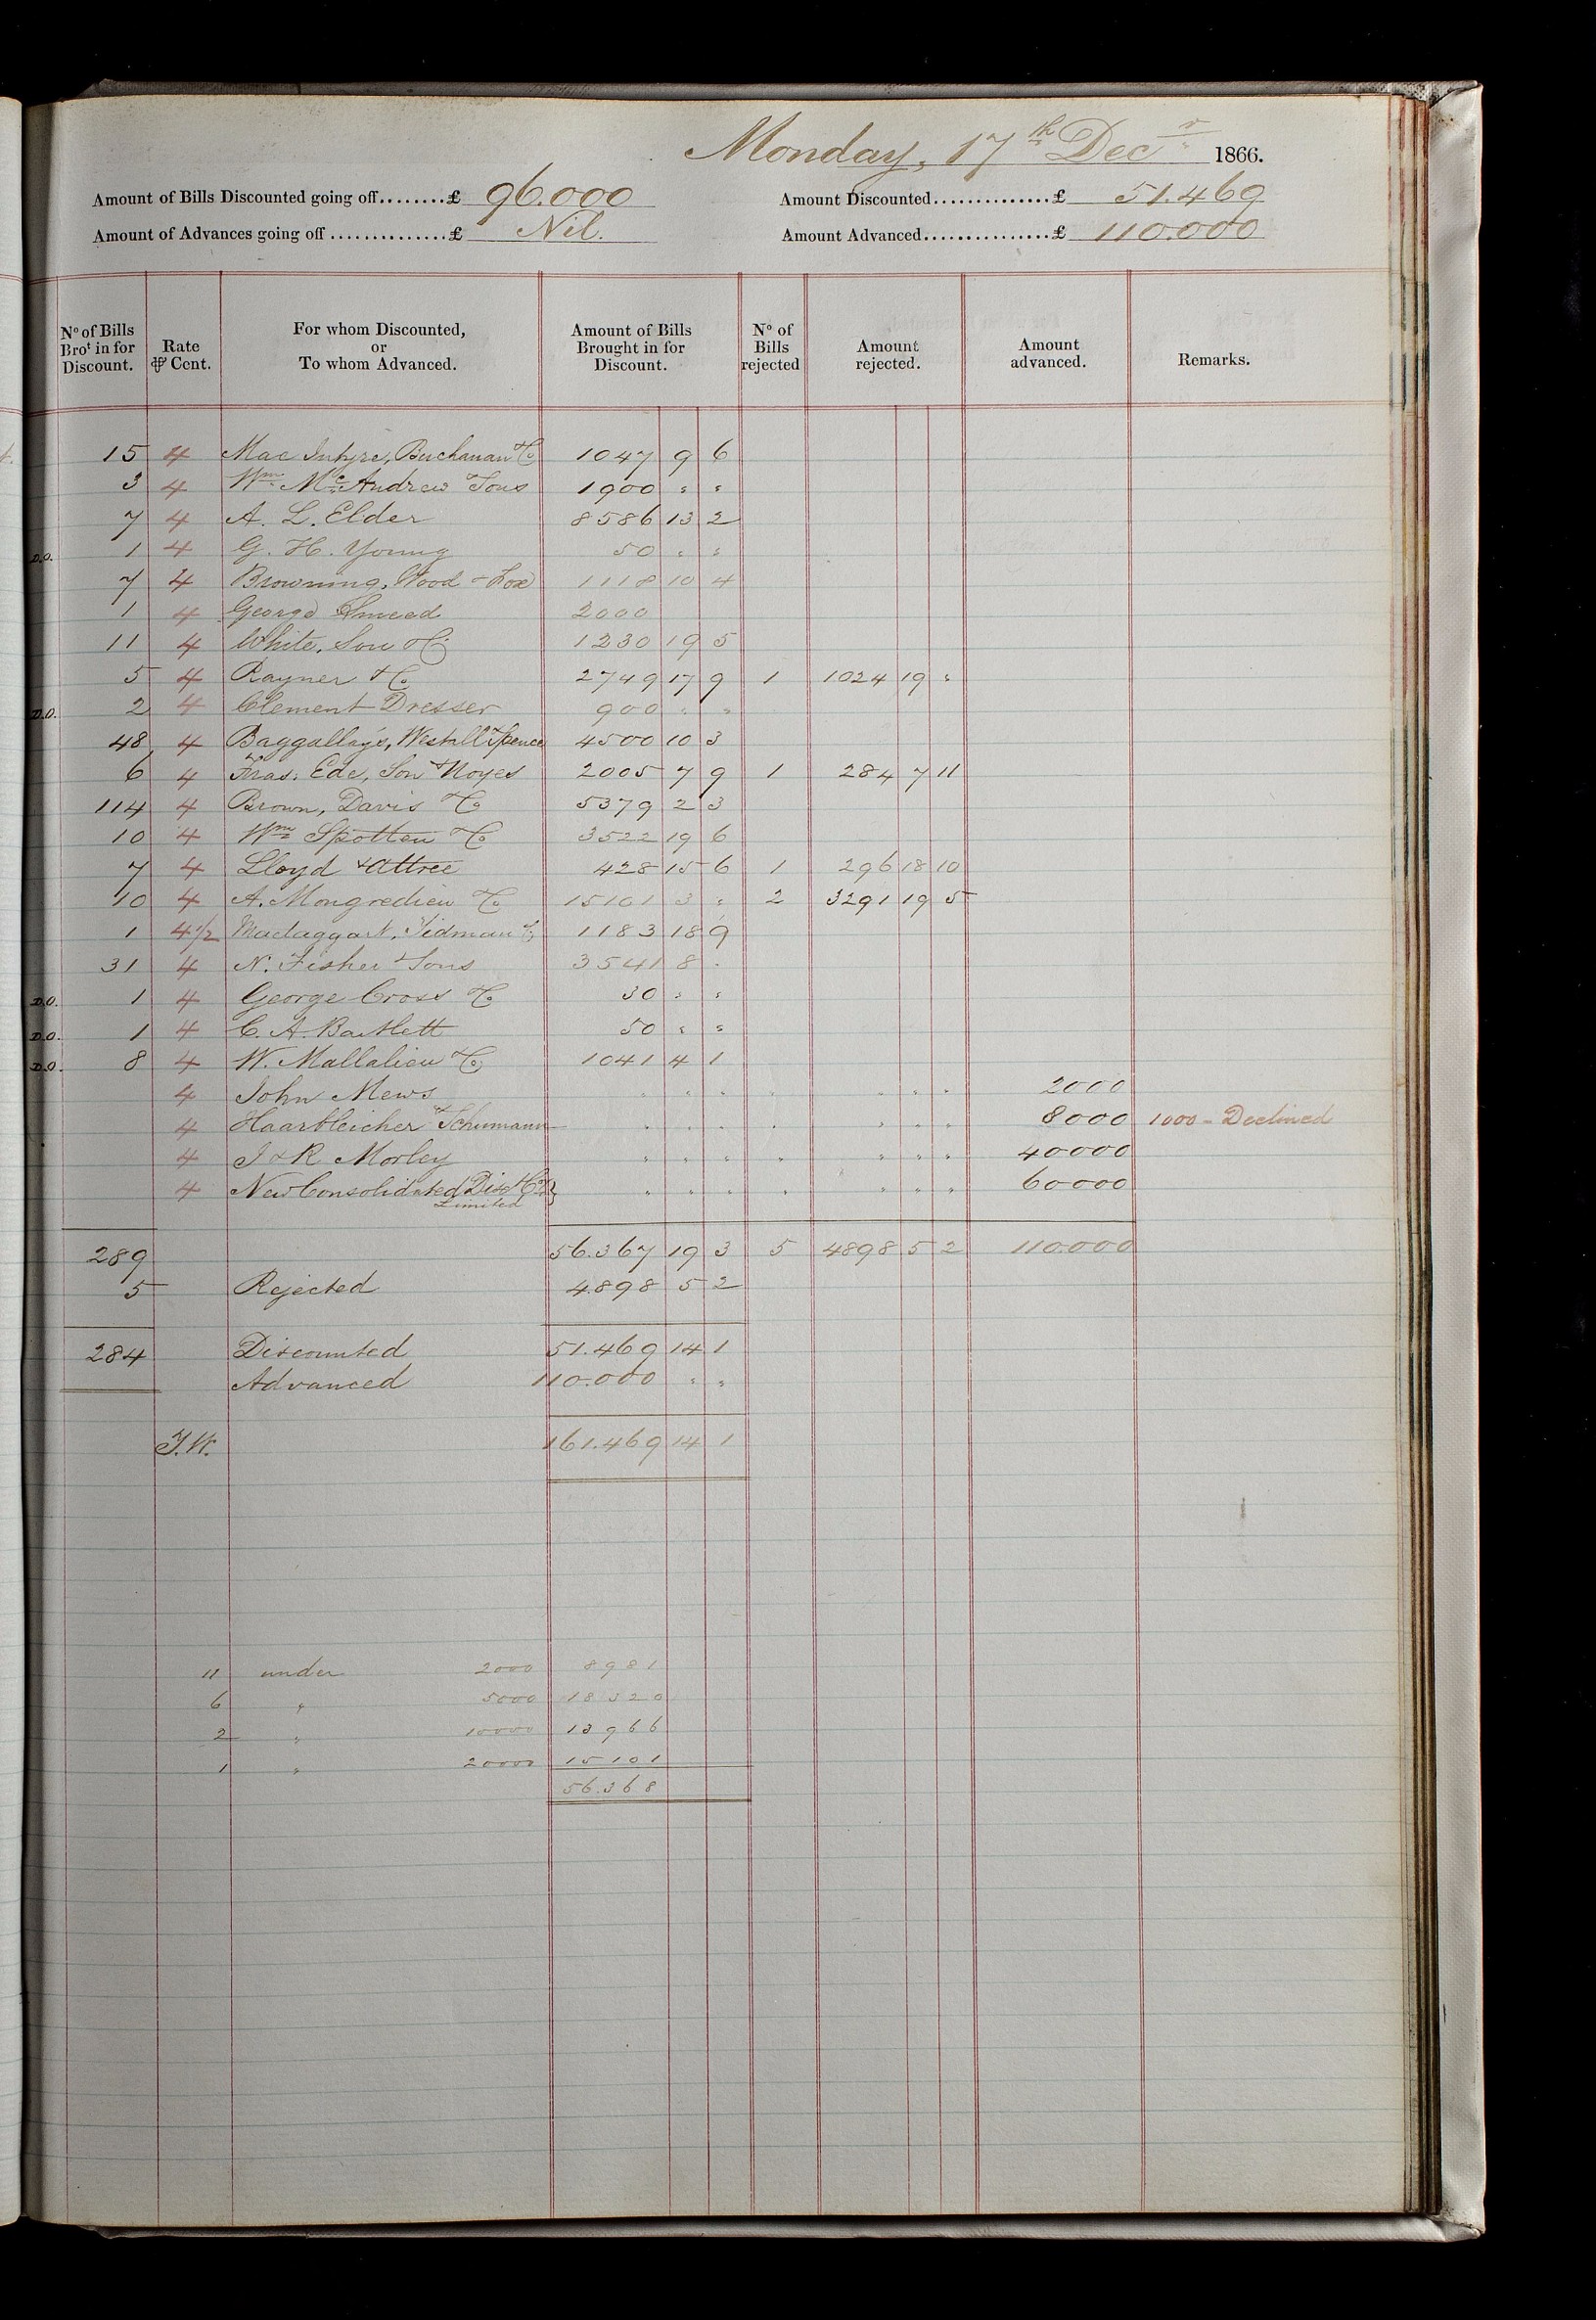 Monday, 17th Decr 1866.
Amount of Bills Discounted going off........£ 96.000 Amount Discounted...............£ 51.469
Amount of Advances going off...............£ Nil. Amount Advanced................£ 110.000
No of Bills Brot in for Discount. Rate ⅌ Cent. For whom Discounted, or To whom Advanced. Amount of Bills Brought in for Discount. No of Bills rejected Amount rejected. Amount advanced. Remarks.
15 4 Mac Intyre, Buchanan & Co 1047 9 6
3 4 Wm McAndrew & Sons 1900 " "
7 4 A. L. Elder 8586 13 2
D.O. 1 4 G. H. Young 50 " "
7 4 Browning, Wood & Fox 1118 10 4
1 4 George Smeed 2000
11 4 White, Son & Co 1230 19 5
5 4 Rayner & Co 2749 17 9 1 1024 19 "
D.O. 2 4 Clement Dresser 900 " "
48 4 Baggallays, Westall & Spence 4500 10 3
6 4 Fras. Ede, Son & Noyes 2005 7 9 1 284 7 11
114 4 Brown, Davis & Co 5379 2 3
10 4 Wm Spotten & Co 3522 19 6
7 4 Lloyd & Attree 428 15 6 1 296 18 10
10 4 A. Mongredien & Co 15101 3 " 2 3291 19 5
1 4 1/2 Mactaggart, Tidman & Co 1183 18 9
31 4 N. Fisher & Sons 3541 8 "
D.O. 1 4 George Cross & Co 30 " "
D.O. 1 4 C. A. Bartlett 50 " "
D.O. 8 4 W. Mallalieu & Co 1041 4 1
4 John Mews " " " " " " " 2000
4 Haarbleicher & Schumann " " " " " " " 8000 1000 - Declined
4 I & R Morley " " " " " " " 40000
4 New Consolidated Dist Co } " " " " " " " 60000
Limited
289 56.367 19 3 5 4898 5 2 110.000
5 Rejected 4.898 5 2
284 Discounted 51.469 14 1
Advanced 110.000 " "
J.W. 161.469 14 1
11 under 2000 8981
6 " 5000 18320
2 " 10000 13966
1 " 20000 15101
56.368